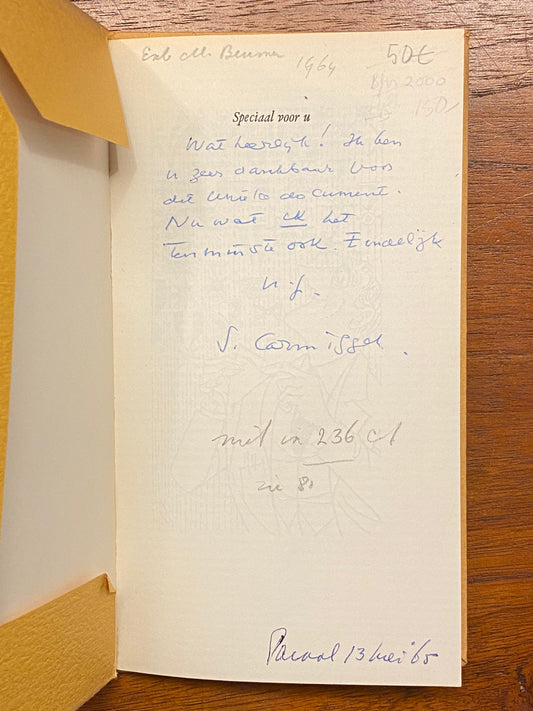 Exb M. Beumer 1964
50€
1500
150/
Speciaal voor u
Wat heerlijk! Ik ben
u zeer dankbaar voor
dit unieke document.
Nu wat ik het
tenminste ook. Eindelijk
S. Carmiggel
niet in 236 cl
zie 80
13 mei '65